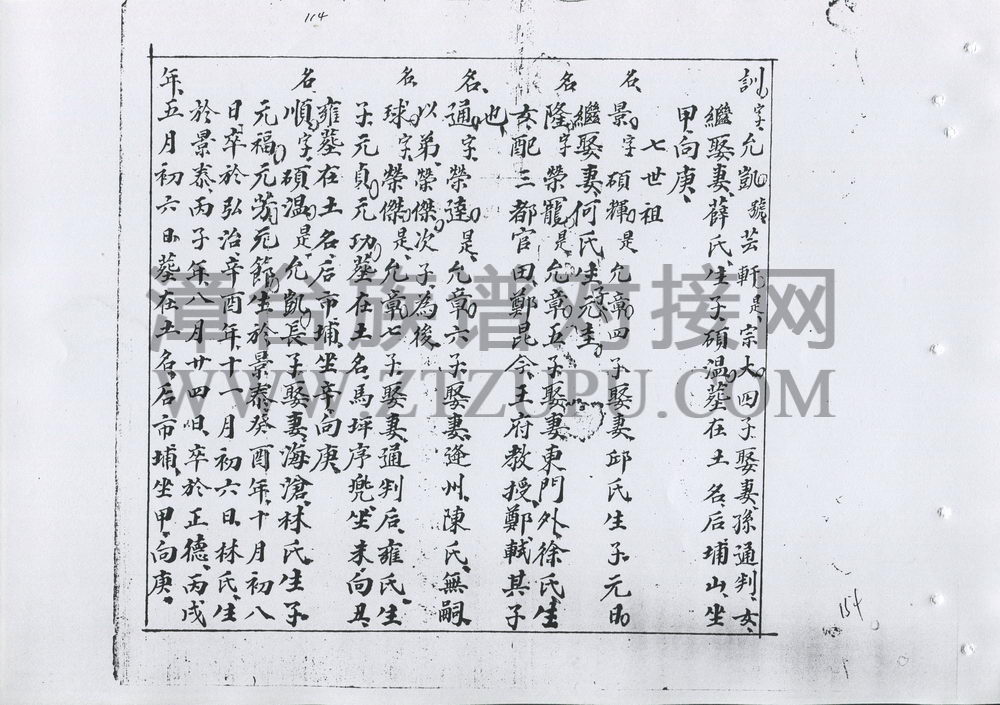 114
訓字允凱號芸軒是宗大四子娶妻孫通判女
繼娶妻薛氏生子碩溫墓在土名后埔山坐
甲向庚
七世祖
名景字碩輝是允章四子娶妻邱氏生子元勛
繼娶妻何氏生元生
名隆字榮寵是允章五子娶妻東門外徐氏生
女配三都官田鄭昆今王府教授鄭軾其子
也
名通字榮達是允章六子娶妻逢州陳氏無嗣
以弟榮傑次子為後
名球字榮傑是允章七子娶妻通判后雍氏生
子元貞元功墓在土名馬坪序兠坐未向丑
雍墓在土名后市埔坐辛向庚
名順字碩溫是允凱長子娶妻海滄林氏生子
元福元芳元節生於景泰癸酉年十月初八
日卒於弘治辛酉年十一月初六日林氏生
於景泰丙子年八月廿四日卒於正德丙戌
年五月初六日墓在土名后市埔坐甲向庚
154
漳台族谱对接网
WWW.ZTZUPU.COM